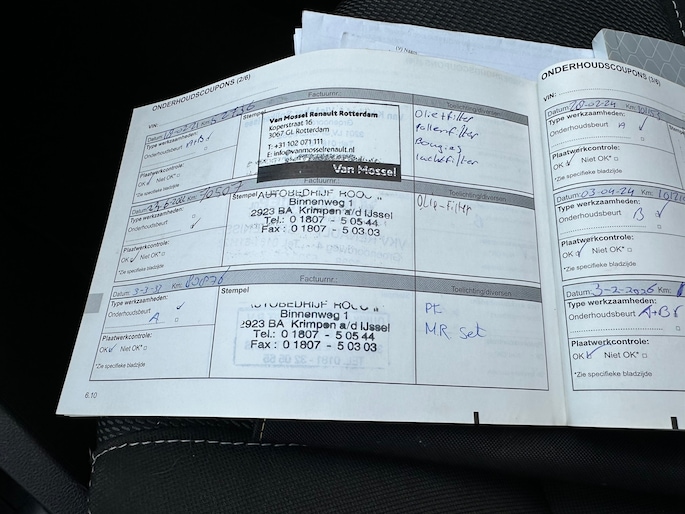 (V) Naam
ONDERHOUDSCOUPONS (2/6)
VIN:
Factuurnr.:
Toelichting/diversen
Datum: Km:
Type werkzaamheden:
Onderhoudsbeurt A+B
Plaatwerkcontrole:
OK Niet OK*
*Zie specifieke bladzijde
Stempel
Van Mossel Renault Rotterdam
Koperstraat 16
3067 GL Rotterdam
T: +31 102 071 111
E: info@vanmosselrenault.nl
Van Mossel
Oliefilter
pollenfilter
Bougies
luchtfilter
Factuurnr.:
Toelichting/diversen
Datum: Km: 70507
Type werkzaamheden:
Onderhoudsbeurt
Plaatwerkcontrole:
OK Niet OK*
*Zie specifieke bladzijde
Stempel
AUTOBEDRIJF
Binnenweg 1
2923 BA Krimpen a/d IJssel
Tel.: 0 1807 - 5 05 44
Fax : 0 1807 - 5 03 03
Factuurnr.:
Toelichting/diversen
Datum: Km:
Type werkzaamheden:
Onderhoudsbeurt
A
Plaatwerkcontrole:
OK Niet OK*
*Zie specifieke bladzijde
Stempel
Binnenweg 1
2923 BA Krimpen a/d IJssel
Tel.: 0 1807 - 5 05 44
Fax : 0 1807 - 5 03 03
MR set
6.10
ONDERHOUDSCOUPONS (3/6)
VIN:
Datum: Km:
Type werkzaamheden:
Onderhoudsbeurt A
Plaatwerkcontrole:
OK Niet OK*
*Zie specifieke bladzijde
Datum: 03-04-24 Km:
Type werkzaamheden:
Onderhoudsbeurt B
Plaatwerkcontrole:
OK Niet OK*
*Zie specifieke bladzijde
Datum: 3-2-2026 Km:
Type werkzaamheden:
Onderhoudsbeurt A+B
Plaatwerkcontrole:
OK Niet OK*
*Zie specifieke bladzijde